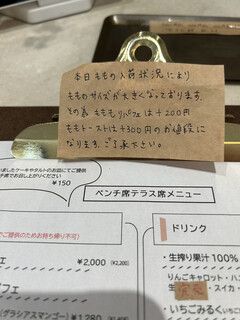 本日ももの入荷状況により
もものサイズが大きくなっております。
その為 ももパフェは+200円
ももトーストは+300円のお値段に
なります。ご了承下さい。
ましたケーキやタルトのお皿にてご提供
子席でお召し上がりください
¥150
ベンチ席テラス席メニュー
てご提供のためお持ち帰り不可)
¥2,000 (¥2,200)
フェ
(グラシアスマンゴー)
¥1,280
ドリンク
・生搾り果汁100%
りんごキャロット・ハ
・スイカ・
・いちごみるく